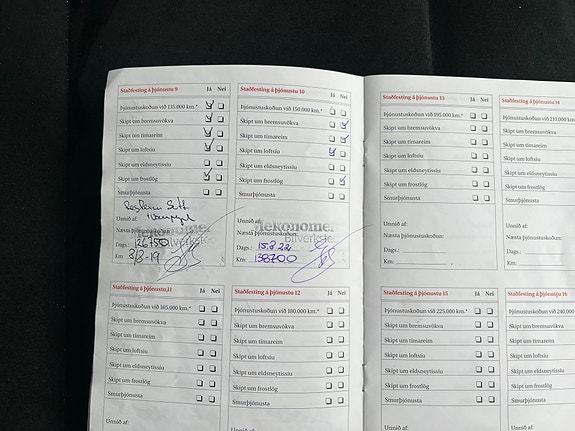 Staðfesting á þjónustu 9 Já Nei
Þjónustuskoðun við 135.000 km.*
Skipt um bremsuvökva
Skipt um tímareim
Skipt um loftsíu
Skipt um eldsneytissíu
Skipt um frostlög
Smurþjónusta
Unnið af:
Næsta þjónustuskoðun
Dags.: 126750
Km: 8/3-19
Staðfesting á þjónustu 10 Já Nei
Þjónustuskoðun við 150.000 km.*
Skipt um bremsuvökva
Skipt um tímareim
Skipt um loftsíu
Skipt um eldsneytissíu
Skipt um frostlög
Smurþjónusta
Mekonomen
Bilverkste
Unnið af:
Næsta þjónustuskoðun:
Dags.: 15.8.22
Km: 138700
Staðfesting á þjónustu 13 Já Nei
Þjónustuskoðun við 195.000 km.*
Skipt um bremsuvökva
Skipt um tímareim
Skipt um loftsíu
Skipt um eldsneytissíu
Skipt um frostlög
Smurþjónusta
Unnið af:
Næsta þjónustuskoðun:
Dags.:
Km:
Staðfesting á þjónustu 14
Þjónustuskoðun við 210.000
Skipt um bremsuvökva
Skipt um tímareim
Skipt um loftsíu
Skipt um eldsneytissíu
Skipt um frostlög
Smurþjónusta
Unnið af:
Næsta þjónustuskoðun:
Dags.:
Km:
Staðfesting á þjónustu 11 Já Nei
Þjónustuskoðun við 165.000 km.*
Skipt um bremsuvökva
Skipt um tímareim
Skipt um loftsíu
Skipt um eldsneytissíu
Skipt um frostlög
Smurþjónusta
Unnið af:
Staðfesting á þjónustu 12 Já Nei
Þjónustuskoðun við 180.000 km.*
Skipt um bremsuvökva
Skipt um tímareim
Skipt um loftsíu
Skipt um eldsneytissíu
Skipt um frostlög
Smurþjónusta
Unnið af:
Staðfesting á þjónustu 15 Já Nei
Þjónustuskoðun við 225.000 km.*
Skipt um bremsuvökva
Skipt um tímareim
Skipt um loftsíu
Skipt um eldsneytissíu
Skipt um frostlög
Smurþjónusta
Unnið af:
Staðfesting á þjónustu 16
Þjónustuskoðun við 240.000
Skipt um bremsuvökva
Skipt um tímareim
Skipt um loftsíu
Skipt um eldsneytissíu
Skipt um frostlög
Smurþjónusta
Unnið af: